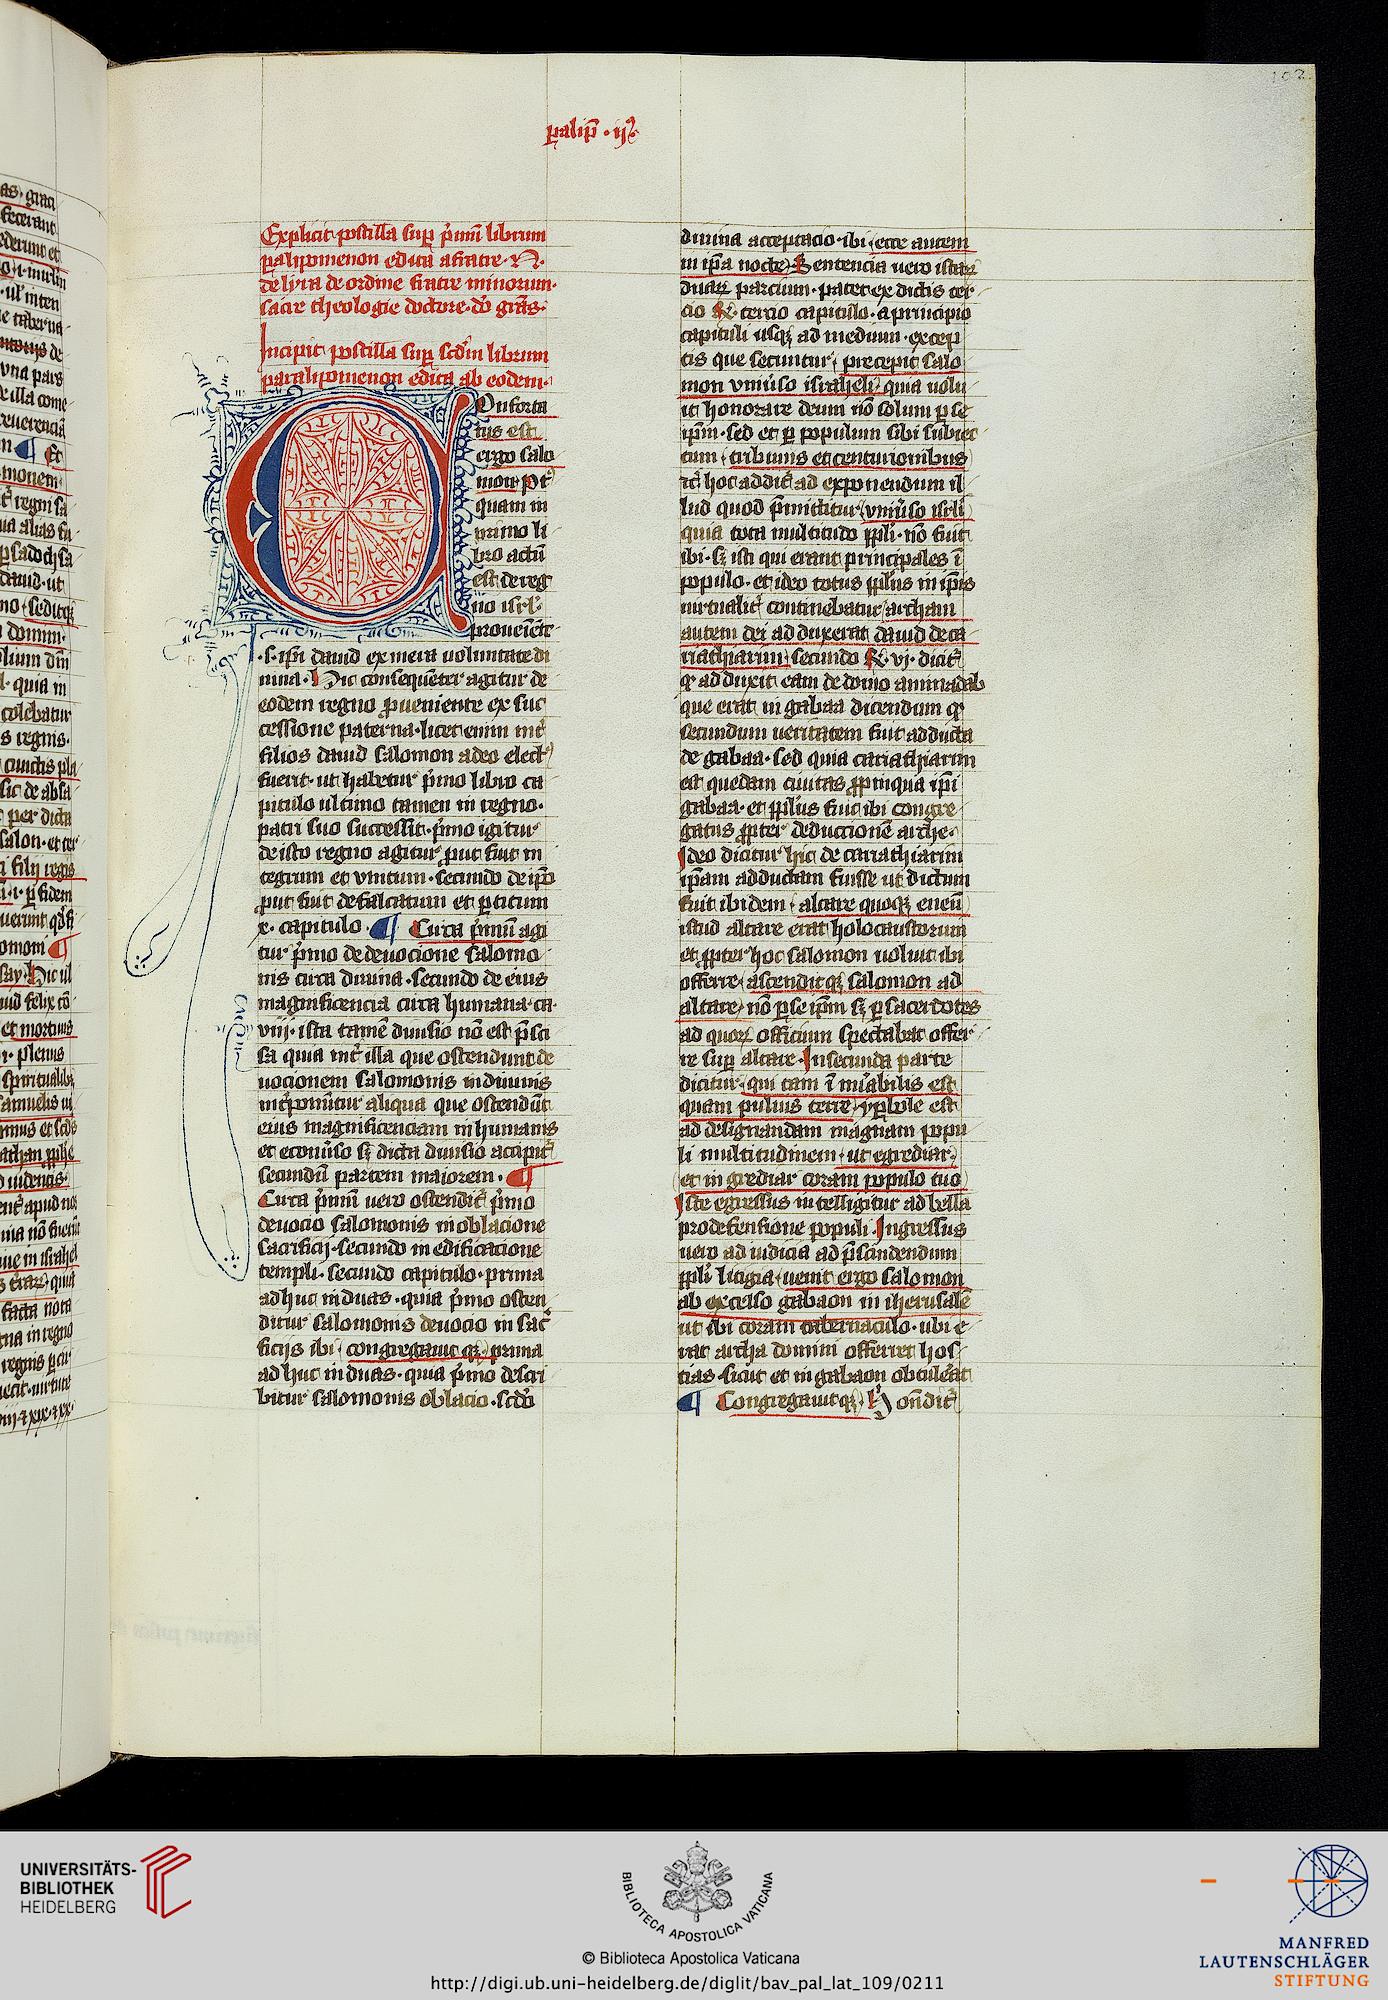 102
palip̄ · ijꝰ
Explicit postilla sup̲ p̄mū librum
palipomenon edita a fratre · N ·
de lira de ordine fratrꝫ minorum ·
sacre theologie doctore · dō grās ·
Incipit postilla sup̲ scd̄m librum
paralipomenon edita ab eodem ·
COnforta
tus est
ergo salo
mon
quam in
primo li
bro actū
est de reg
no isrl̄ ·
proueniēte
· s · ip̄i dauid ex mera uoluntate di
uina · Hic consequēter agitur de
eodem regno ꝓueniente ex suc
cessione paterna · licet enim int̄
filios dauid salomon a deo elect9
fuerit · ut habetur p̄mo libro ca
pitulo ultimo tamen in regno ·
patri suo successit · p̄mo igitur
de isto regno agitur ꝓut fuit in
tegrum et vnitum · secundo de ip̄o
ꝓut fuit defalcatum et ꝑtitum
x · capitulo · ¶ Circa p̄mū agi
tur p̄mo de deuocione salomo
nis circa diuina · secundo de eius
magnificencia circa humana · ca ·
viij · ista tamē diuisio nō est p̄sci
sa quia int̄ illa que ostendunt de
uocionem salomonis in diuinis
int̄ponūtur aliqua que ostendūt
eius magnificenciam in humanis
et econūso sꝫ dicta diuisio accipit̄
secundū partem maiorem · ¶
Circa p̄mū uero ostendit̄ p̄mo
deuocio salomonis in oblacione
sacrificij · secundo in edificacione
templi · secundo capitulo · prima
ad huc in duas · quia p̄mo osten
ditur salomonis deuocio in sac̄
ficijs ibi · congregauit qꝫ · prima
ad huc in duas · quia p̄mo descri
bitur salomonis oblacio · scd̄o
diuina acceptacio · ibi · ecce autem
in ip̄a nocte · Sentencia uero istaꝝ
duaꝝ parcium · patet ex dictis ter
cio R · tercio capitulo · a principio
capituli usqꝫ ad medium · excep
tis que secuntur · precepit salo
mon vniūso israheli · quia uolu
it honorare deum nō solum ꝑ se
ip̄m · sed et ꝑ populum sibi subiec
tum · tribunis et centurionibus
hoc addit̄ ad exponendum il
lud quod p̄mittitur · vniūso isrl̄i
quia tota multitudo ppl̄i · nō fuit
ibi · sꝫ isti qui erant principales ī
populo · et ideo totus ppl̄us in ip̄is
uirtualit̄ continebatur · archam
autem dei ad duxerat dauid de ca
riathiarim · secundo R · vj · dicit̄
qꝫ ad duxit eam de domo aminadab
que erat in gabaa dicendum qꝫ
secundum ueritatem fuit adducta
de gabaa · sed quia cariathiarim
est quedam ciuitas ꝓpinqua ip̄i
gabaa · et ppl̄us fuit ibi congre
gatus ꝓpter deductionē arche ·
Ideo dicitur hic de cariathiarim
ip̄am adductam fuisse ut dictum
fuit ibidem · altare quoqꝫ eneū
istud altare erat holocaustorum
et ꝓpter hoc salomon uoluit ibi
offerre · ascenditqꝫ salomon ad
altare · nō ꝑ se ip̄m sꝫ ꝑ sacerdotes
ad quoꝝ officium spectabat offer
re sup̲ altare · In secunda parte
dicitur · qui tam īnūabilis est
quam puluis terre · yꝑbole est
ad designandam magnam popu
li multitudinem · ut egrediar ·
et in grediar coram populo tuo
Iste egressus intelligitur ad bella
pro defensione populi · Ingressus
uero ad iudicia ad p̄scindendum
ppl̄i litigia · uenit ergo salomon
ab excelso gabaon in iherusalē
ut ibi coram tabernaculo · ubi e
rat archa domini offerret hos
tias · sicut et in gabaon obtulerat
¶ Congregauitqꝫ · Hic ondit̄
UNIVERSITÄTS-
BIBLIOTHEK
HEIDELBERG
BIBLIOTECA APOSTOLICA VATICANA
© Biblioteca Apostolica Vaticana
http://digi.ub.uni-heidelberg.de/diglit/bav_pal_lat_109/0211
MANFRED
LAUTENSCHLÄGER
STIFTUNG